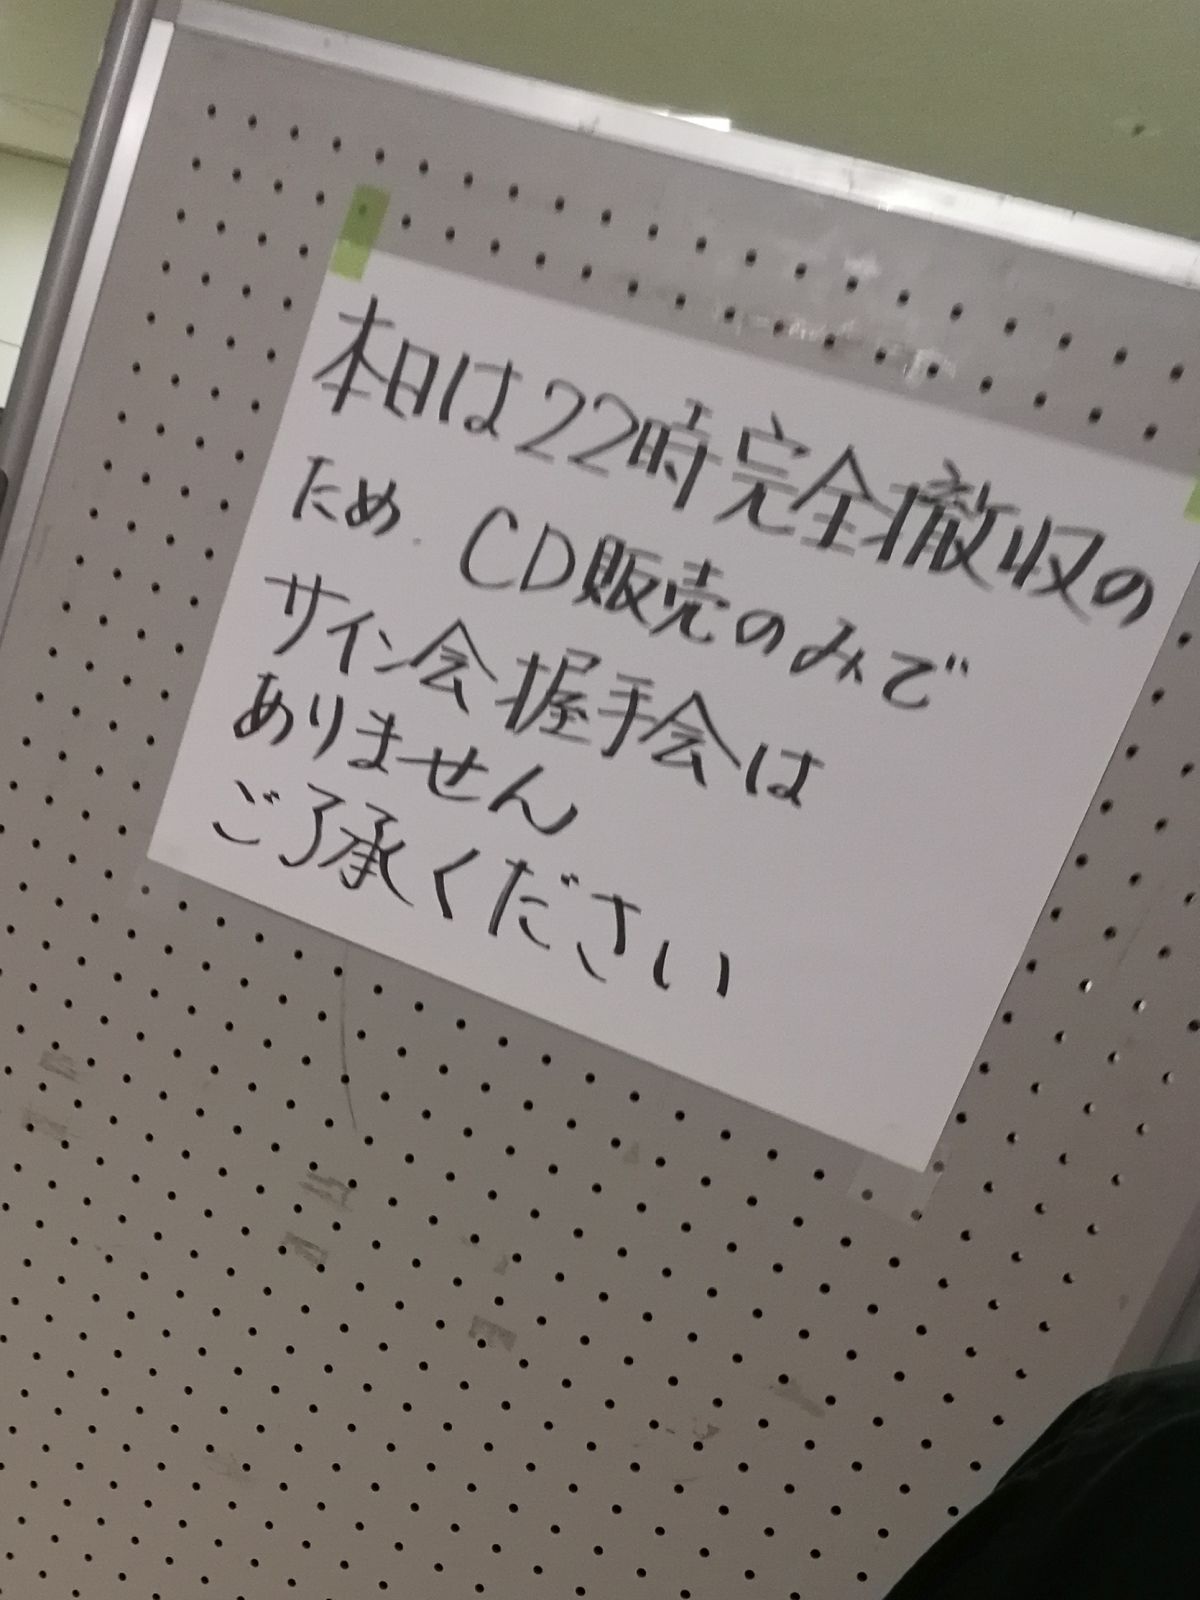 本日は22時完全撤収の
ため、CD販売のみで
サイン会握手会は
ありません
ご了承ください